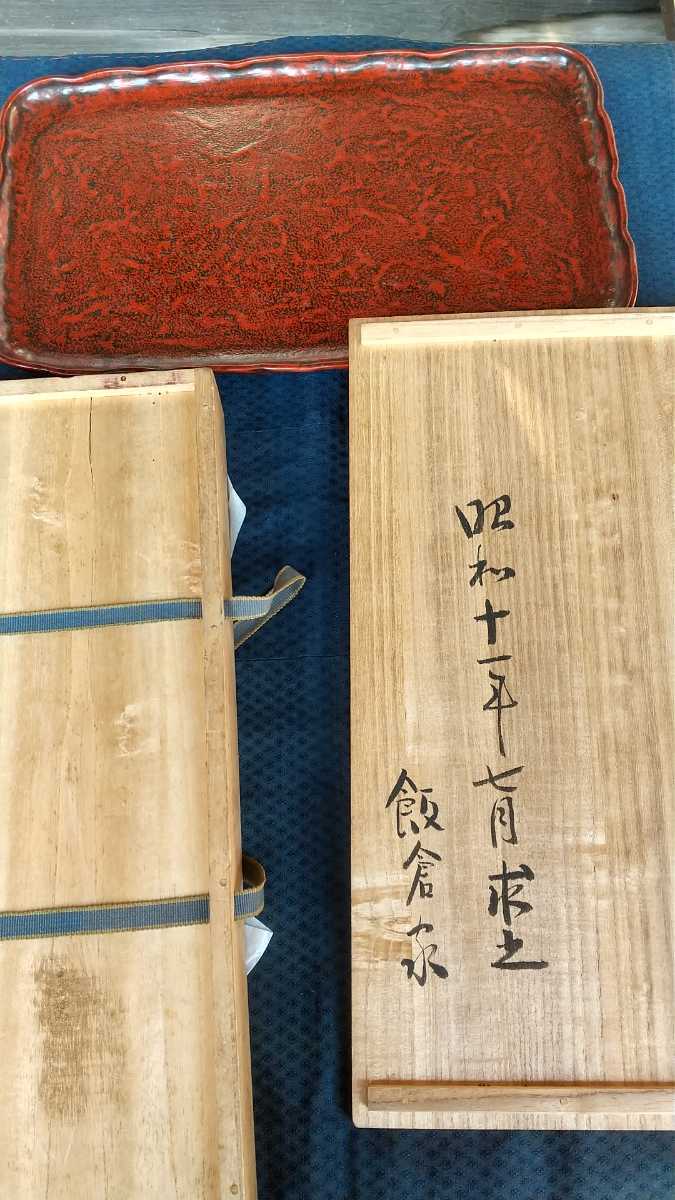 昭和十一年七月求之
飯倉家